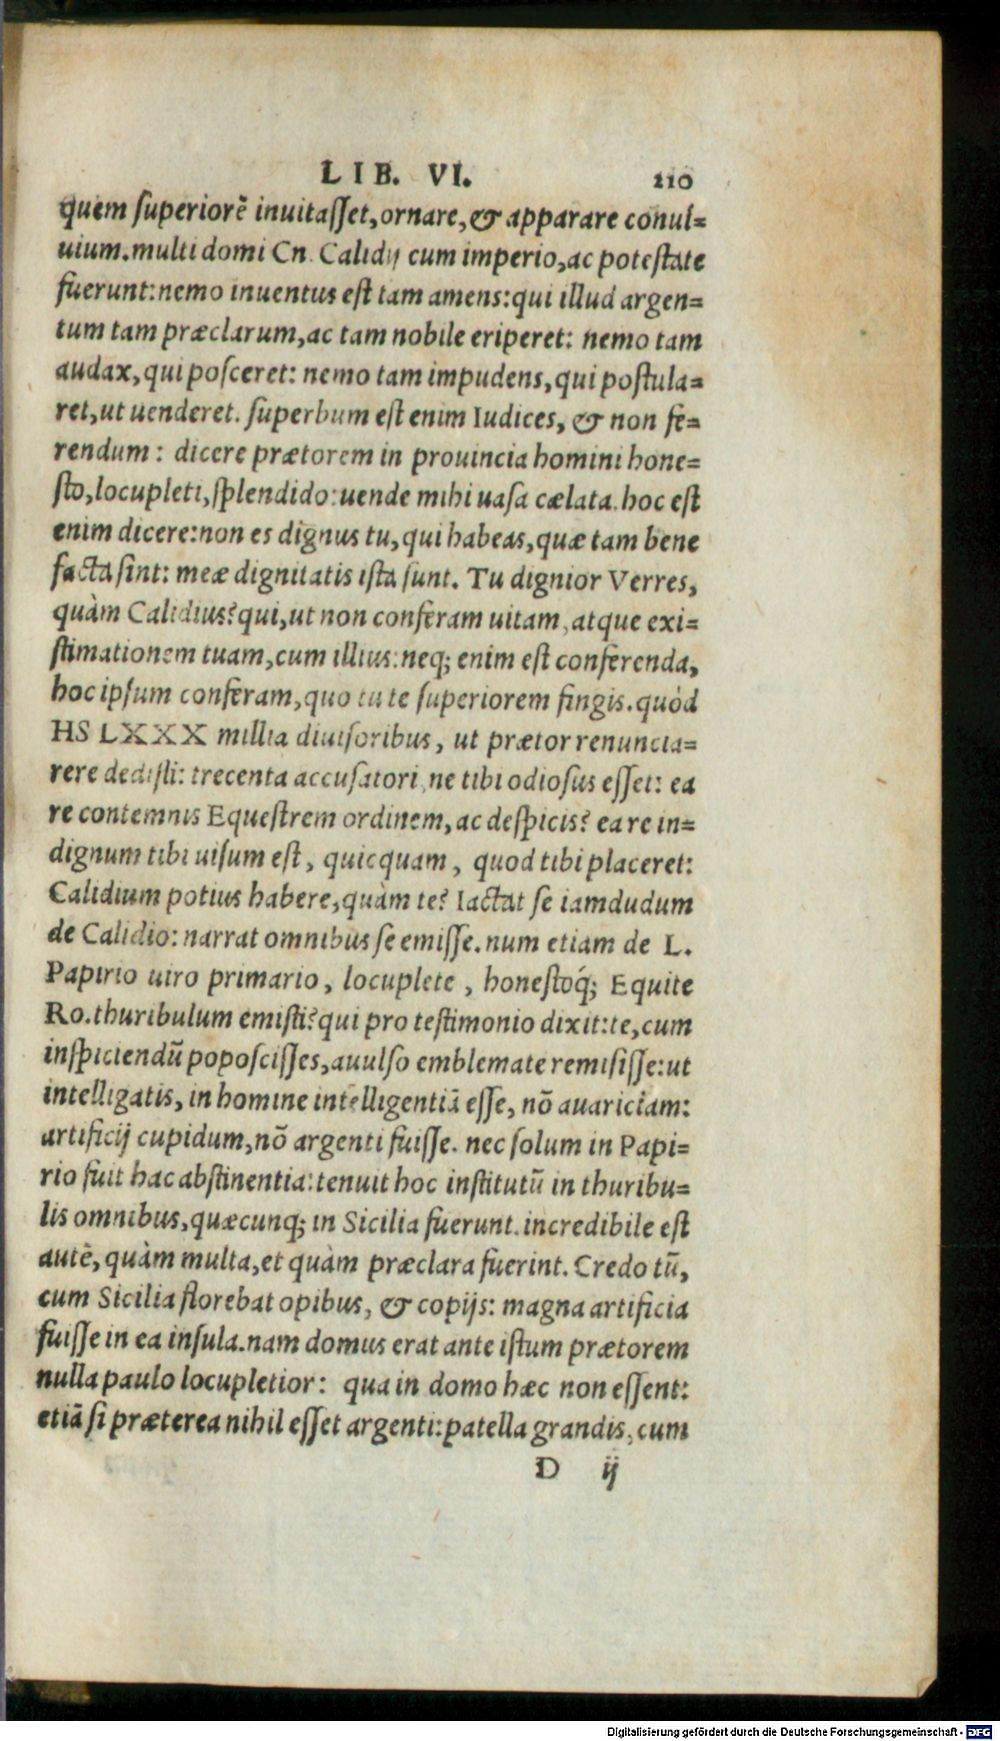 LIB. VI. 210
quem superiorē inuitasset, ornare, & apparare conui-
uium. multi domi Cn. Calidij cum imperio, ac potestate
fuerunt: nemo inuentus est tam amens: qui illud argen-
tum tam præclarum, ac tam nobile eriperet: nemo tam
audax, qui posceret: nemo tam impudens, qui postula-
ret, ut uenderet. superbum est enim Iudices, & non fe-
rendum: dicere prætorem in prouincia homini hone-
sto, locupleti, splendido: uende mihi uasa cælata. hoc est
enim dicere: non es dignus tu, qui habeas, quæ tam bene
facta sint: meæ dignitatis ista sunt. Tu dignior Verres,
quàm Calidius? qui, ut non conferam uitam, atque exi-
stimationem tuam, cum illius: neq; enim est conferenda,
hoc ipsum conferam, quo tu te superiorem fingis. quòd
HS LXXX millia diuisoribus, ut prætor renuncia-
rere dedisti: trecenta accusatori, ne tibi odiosus esset: ea
re contemnis Equestrem ordinem, ac despicis? ea re in-
dignum tibi uisum est, quicquam, quod tibi placeret:
Calidium potius habere, quàm te? Iactat se iamdudum
de Calidio: narrat omnibus se emisse. num etiam de L.
Papirio uiro primario, locuplete, honestoq́; Equite
Ro. thuribulum emisti? qui pro testimonio dixit: te, cum
inspiciendū poposcisses, auulso emblemate remisisse: ut
intelligatis, in homine intelligentiā esse, nō auariciam:
artificij cupidum, nō argenti fuisse. nec solum in Papi-
rio fuit hac abstinentia: tenuit hoc institutū in thuribu-
lis omnibus, quæcunq; in Sicilia fuerunt. incredibile est
autē, quàm multa, et quàm præclara fuerint. Credo tū,
cum Sicilia florebat opibus, & copijs: magna artificia
fuisse in ea insula. nam domus erat ante istum prætorem
nulla paulo locupletior: qua in domo hæc non essent:
etiā si præterea nihil esset argenti: patella grandis, cum
D ij
Digitalisierung gefördert durch die Deutsche Forschungsgemeinschaft - DFG